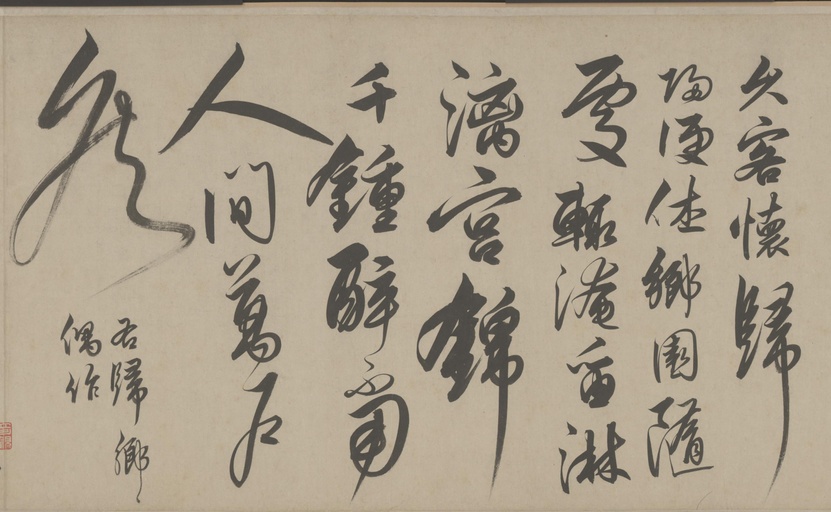 久客懷歸
歸便休鄉園隨
處輒淹留淋
漓宮錦
千鍾醉不
人間萬戶
侯
右歸鄉
偶作